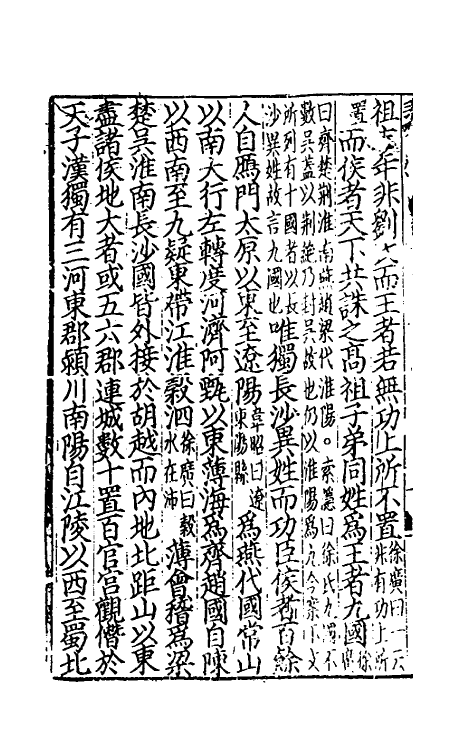 祖年非劉氏而王者若無功上所不置徐廣曰一云非有功上所
置而侯者天下共誅之高祖子弟同姓為王者九國徐廣
曰齊楚荊淮南燕趙梁代淮陽。索隱曰徐氏九國不
數吳蓋以荊絕乃封吳故也仍以淮陽為九今案下文
所列有十國者以長沙異姓故言九國也唯獨長沙異姓而功臣侯者百餘
人自鴈門太原以東至遼陽韋昭曰遼東陽縣為燕代國常山
以南大行左轉度河濟阿甄以東薄海為齊趙國自陳
以西南至九疑東帶江淮穀泗徐廣曰穀水在沛薄會稽為梁
楚吳淮南長沙國皆外接於胡越而內地北距山以東
盡諸侯地大者或五六郡連城數十置百官宮觀僭於
天子漢獨有三河東郡潁川南陽自江陵以西至蜀北